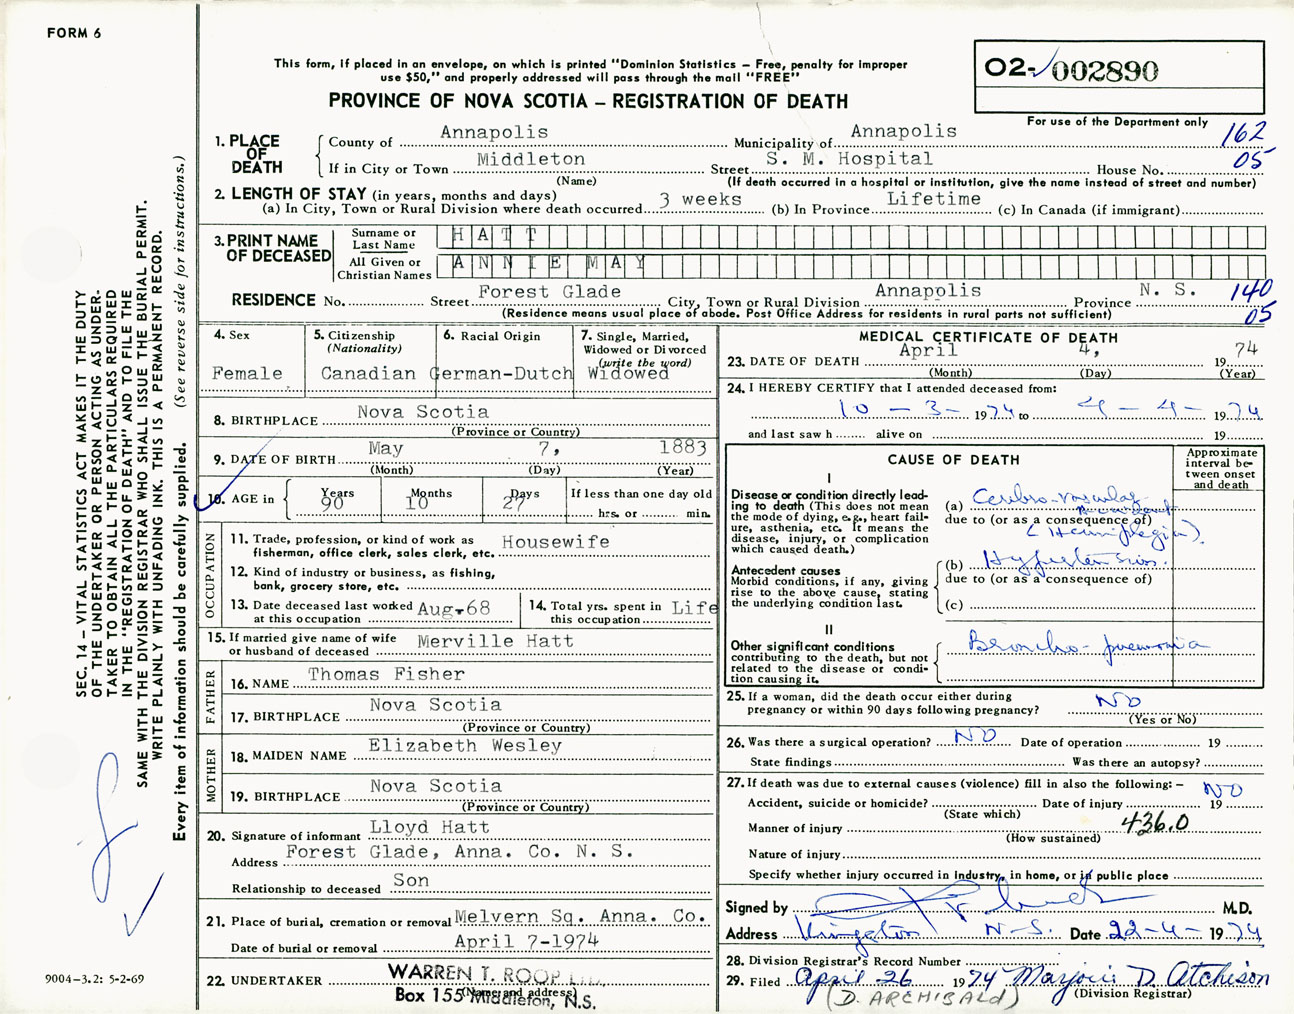 FORM 6
This form, if placed in an envelope, on which is printed "Dominion Statistics – Free, penalty for improper
use $50," and properly addressed will pass through the mail "FREE"
PROVINCE OF NOVA SCOTIA – REGISTRATION OF DEATH
O2- 002890
For use of the Department only
162
05
1. PLACE OF DEATH
County of Annapolis Municipality of Annapolis
If in City or Town Middleton Street S. M. Hospital House No.
(Name) (If death occurred in a hospital or institution, give the name instead of street and number)
2. LENGTH OF STAY (in years, months and days)
(a) In City, Town or Rural Division where death occurred 3 weeks (b) In Province Lifetime (c) In Canada (if immigrant)
3. PRINT NAME OF DECEASED
Surname or Last Name HATT
All Given or Christian Names ANNIE MAY
RESIDENCE No. Street Forest Glade City, Town or Rural Division Annapolis Province N. S. 140
(Residence means usual place of abode. Post Office Address for residents in rural parts not sufficient) 05
4. Sex
Female
5. Citizenship
(Nationality)
Canadian
6. Racial Origin
German-Dutch
7. Single, Married,
Widowed or Divorced
(write the word)
Widowed
8. BIRTHPLACE Nova Scotia
(Province or Country)
9. DATE OF BIRTH May 7, 1883
(Month) (Day) (Year)
10. AGE in Years Months Days If less than one day old
90 10 27 hrs. or min.
OCCUPATION
11. Trade, profession, or kind of work as
fisherman, office clerk, sales clerk, etc. Housewife
12. Kind of industry or business, as fishing,
bank, grocery store, etc.
13. Date deceased last worked
at this occupation Aug.68
14. Total yrs. spent in
this occupation Life
15. If married give name of wife
or husband of deceased Merville Hatt
FATHER
16. NAME Thomas Fisher
17. BIRTHPLACE Nova Scotia
(Province or Country)
MOTHER
18. MAIDEN NAME Elizabeth Wesley
19. BIRTHPLACE Nova Scotia
(Province or Country)
20. Signature of informant Lloyd Hatt
Address Forest Glade, Anna. Co. N. S.
Relationship to deceased Son
21. Place of burial, cremation or removal Melvern Sq. Anna. Co.
Date of burial or removal April 7-1974
22. UNDERTAKER WARREN T. ROOP LTD.
(Name and address)
Box 155 Middleton, N.S.
MEDICAL CERTIFICATE OF DEATH
23. DATE OF DEATH April 4, 1974
(Month) (Day) (Year)
24. I HEREBY CERTIFY that I attended deceased from:
10 - 3 - 1974 to 4 - 4 - 1974
and last saw h alive on 19
CAUSE OF DEATH
Approximate
interval be-
tween onset
and death
I
Disease or condition directly lead-
ing to death (This does not mean
the mode of dying, e.g., heart fail-
ure, asthenia, etc. It means the
disease, injury, or complication
which caused death.)
(a) Cerebro-vascular
Accident
due to (or as a consequence of)
(Hemiplegia).
Antecedent causes
Morbid conditions, if any, giving
rise to the above cause, stating
the underlying condition last.
(b) Hypertension.
due to (or as a consequence of)
(c)
II
Other significant conditions
contributing to the death, but not
related to the disease or condi-
tion causing it.
Broncho-pneumonia
25. If a woman, did the death occur either during
pregnancy or within 90 days following pregnancy? NO
(Yes or No)
26. Was there a surgical operation? NO Date of operation 19
State findings Was there an autopsy?
27. If death was due to external causes (violence) fill in also the following: – NO
Accident, suicide or homicide? Date of injury 19
(State which)
Manner of injury 436.0
(How sustained)
Nature of injury
Specify whether injury occurred in industry, in home, or in public place
Signed by M.D.
Address Kingston N-S. Date 22-4-1974
28. Division Registrar's Record Number
29. Filed April 26 1974 Marjorie D. Atchison
(D. ARCHIBALD) (Division Registrar)
SEC. 14 – VITAL STATISTICS ACT MAKES IT THE DUTY
OF THE UNDERTAKER OR PERSON ACTING AS UNDER-
TAKER TO OBTAIN ALL THE PARTICULARS REQUIRED
IN THE "REGISTRATION OF DEATH" AND TO FILE THE
SAME WITH THE DIVISION REGISTRAR WHO SHALL ISSUE THE BURIAL PERMIT.
WRITE PLAINLY WITH UNFADING INK. THIS IS A PERMANENT RECORD.
Every item of information should be carefully supplied. (See reverse side for instructions.)
9004-3.2: 5-2-69